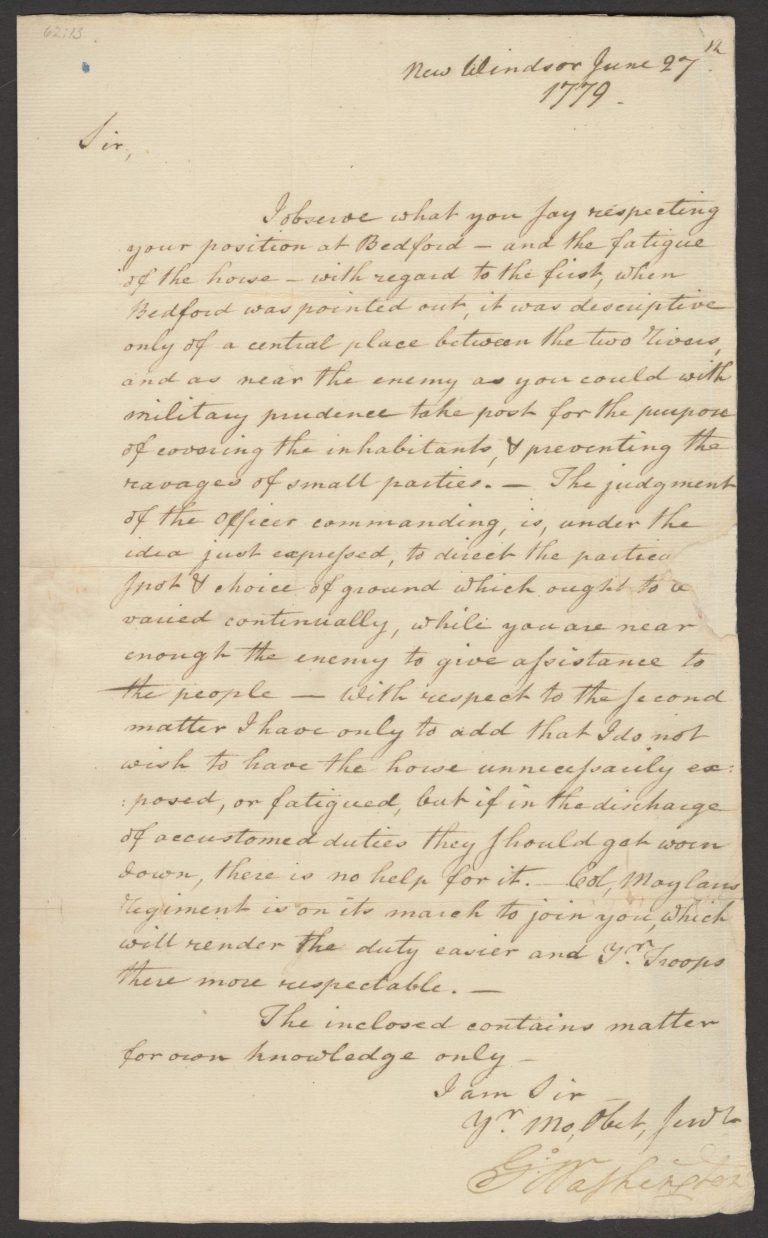 62:13
12
New Windsor June 27
1779.
Sir,
I observe what you say respecting
your position at Bedford – and the fatigue
of the horse – with regard to the first, when
Bedford was pointed out, it was descriptive
only of a central place between the two rivers,
and as near the enemy as you could with
military prudence take post for the purpose
of covering the inhabitants, & preventing the
ravages of small parties. – The judgment
of the Officer commanding, is, under the
idea just expressed, to direct the particu
spot & choice of ground which ought to
varied continually, while you are near
enough the enemy to give assistance to
the people – With respect to the second
matter I have only to add that I do not
wish to have the horse unnecessarily ex:
:posed, or fatigued, but if in the discharge
of accustomed duties they should get worn
down, there is no help for it. – Col, Moylans
Regiment is on its march to join you, which
will render the duty easier and Yr. Troops
there more respectable. –
The inclosed contains matter
for own knowledge only –
I am Sir
Yr. Mo, Obet, Servt
Go: Washington